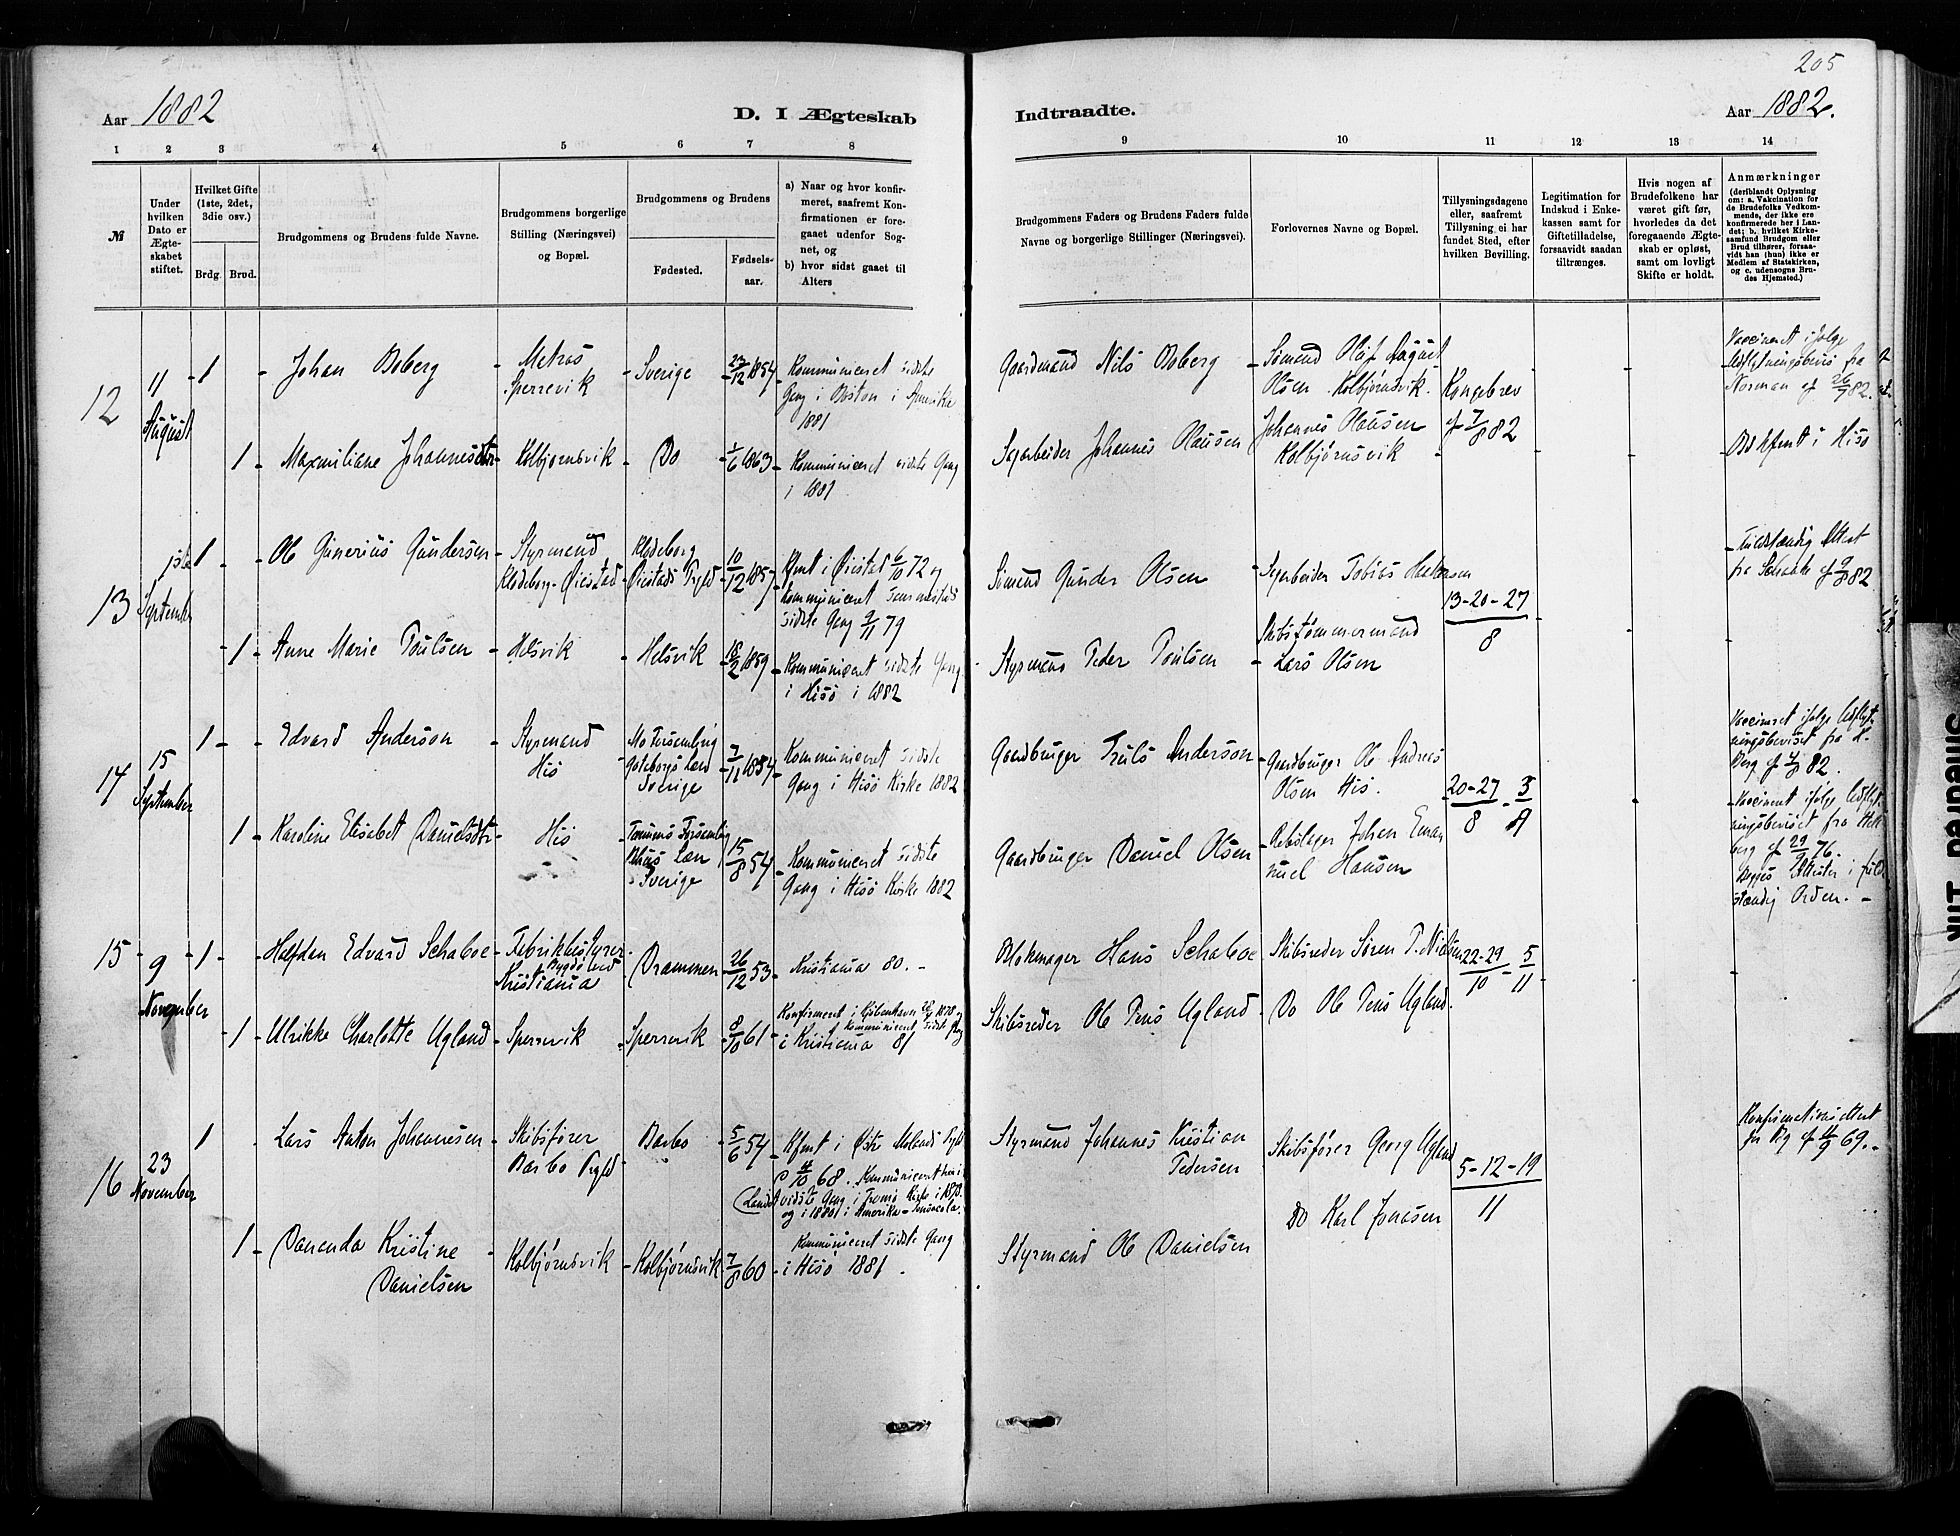 205
Aar 1882
D. I Ægteskab
Indtraadte.
Aar 1882.
1 2 3 4 5 6 7 8
9 10 11 12 13 14
№
Under hvilken Dato er Ægteskabet stiftet.
Hvilket Gifte (1ste, 2det, 3die osv.)
Brdg. Brud.
Brudgommens og Brudens fulde Navne.
Brudgommens borgerlige Stilling (Næringsvei) og Bopæl.
Brudgommens og Brudens
Fødested.
Fødselsaar.
a) Naar og hvor konfirmeret, saafremt Konfirmationen er foregaaet udenfor Sognet, og
b) hvor sidst gaaet til Alters
Brudgommens Faders og Brudens Faders fulde Navne og borgerlige Stillinger (Næringsvei).
Forlovernes Navne og Bopæl.
Tillysningsdagene eller, saafremt Tillysning ei har fundet Sted, efter hvilken Bevilling.
Legitimation for Indskud i Enkekassen samt for Giftetilladelse, forsaavidt saadan tiltrænges.
Hvis nogen af Brudefolkene har været gift før, hvorledes da det foregaaende Ægteskab er opløst, samt om lovligt Skifte er holdt.
Anmærkninger
(deriblandt Oplysning om: a. Vakcination for de Brudefolks Vedkommende, der ikke ere konfirmerede her i Landet; b. hvilket Kirkesamfund Brudgom eller Brud tilhører, forsaavidt han (hun) ikke er Medlem af Statskirken, og c. udensogns Brudes Hjemsted.)
12
11 August
1 - Johan Boberg - Metros Sperrevik - Sverige - 23/12 1854 - Kommuniceret sidste Gang i Boston i Amerika 1881
Gaardmand Nils Boberg - Sømand Olaf August Olsen Kolbjørnsvik. Kongebrev af 7/8 82
Vaccineret ifølge Udflytningsbevis fra Norman af 26/7 82.
1 - Maxmiliane Johannesdtr - Kolbjørnsvik - Do - 1/6 1863 - Kommuniceret sidste Gang i 1881
Sagarbeider Johannes Hansen Johannes Hansen Kolbjørnsvik - i Hisø
13
1ste September
1 - Ole Gunerius Gundersen - Styrmand Klodeborg Øiestad - Klodeborg Øiestads Prgld - 10/12 1857 - Kfmt i Øiestad 6/10 72 og kommuniceret sidste Gang 9/11 79
Sömand Gunder Olsen - Sagarbeider Tobias
13-20-27/8
- Fuldstændig Attest fra Schanke af 9/8 82
1 - Anne Marie Poulsen - Helsvik - Helsvik - 18/2 1859 - Kommuniceret sidste Gang i Hisö i 1882
Styrmand Peder Poulsen - Skibstömmermand Lars Olsen
14
15 September
1 - - Edvard Anderson - Styrmand His - Mo Forsamling Göteborgs Læn Sverige - 7/11 1854 - Kommuniceret sidste Gang i Hisö Kirke 1882
Gaardbruger Truls Anderson - Gaardbruger Ole Andreas Olsen His.
20-27/8 - 3/9
Vaccineret ifølge Udflytningsbeviset fra
1 - Karoline Elisabet Danielsdtr - His - Forsamling Bohus Læn Sverige 15/8 54 - Kommuniceret sidste Gang i Hisö Kirke 1882
Gaardbruger Daniel Olsen - Rebslager Johan Emanuel Hansen
- Vaccineret ifølge Udflytningsbeviset fra af 29/9 76. Begges Attester i fuldstændig Orden. -
15
9 November
1 - Halfdan Edvard Schaboe - Fabrikbestyrer Bygdö ved Kristiania - Drammen - 26/12 53 - Kristiania 80. -
Hans Schaboe Skibsreder Sören P. Nielsen 22-29/10 - 5/11
1 - Ulrikke Charlotte Ugland - Sperrevik - Sperrevik - 8/10 61 - Konfirmeret i Kjöbenhavn 1878 og kommuniceret sidste Gang i Kristiania 81
Skibsreder Ole Tens Ugland - Do Ole Tens Ugland.
16
23 November
1 - Lars Anton Johannesen - Skibsfører Barbo Prgld - Barbo - 5/6 54 - Kfmt i Östre Molands Prgld 4/10 68. Kommuniceret her i Landet sidste Gang i Tromö Kirke i 1878. og i 1880 i Amerika - Pensacola.
Styrmand Johannes Kristian Pedersen Skibsförer Georg Ugland
5-12-19/11
Konfirmationsattest fra 11/9 69. -
1 - Dananda Kristine Danielsen - Kolbjørnsvik - Kolbjørnsvik 7/8 60 - Kommuniceret sidste Gang i Hisö 1881.
Styrmand Ole Danielsen Do Karl Jonasen